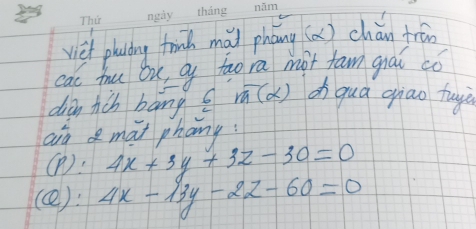 Thứ ngày tháng năm
viết phương trình mặt phẳng (α) chắn trên
các trục Ox, Oy tạo ra một tam giác có
diện tích bằng 6 và (α) đi qua giao tuyến
của 2 mặt phẳng:
(P): 4x + 3y + 3z - 30 = 0
(Q): 4x - 13y - 2z - 60 = 0